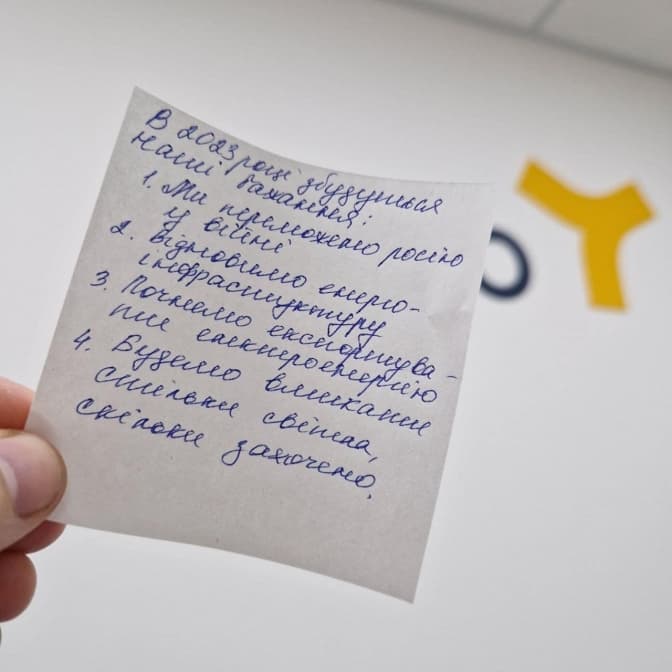 В 2023 році збудуться
наші бажання:
1. Ми переможемо росію
у війні
2. Відновимо енерго-
інфраструктуру
3. Почнемо експортува-
ти електроенергію
4. Будемо вмикати
стільки світла,
скільки захочемо.